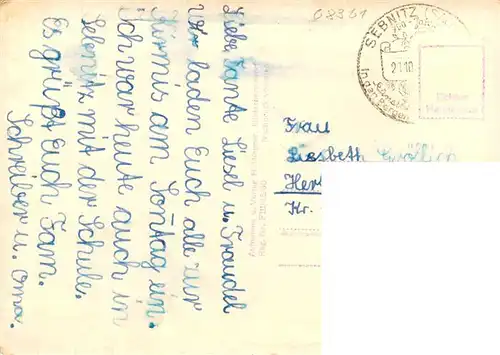 Liebe Tante Liesel u. Traudel
Wir laden Euch alle zur
Kirmis am Sonntag ein.
Ich war heute auch in
Sebnitz mit der Schule.
Es grüßt Euch Fam.
Schreiber u. Oma.
08361
SEBNITZ (S
21.10
Frau
Liesbeth
Her
Kr.